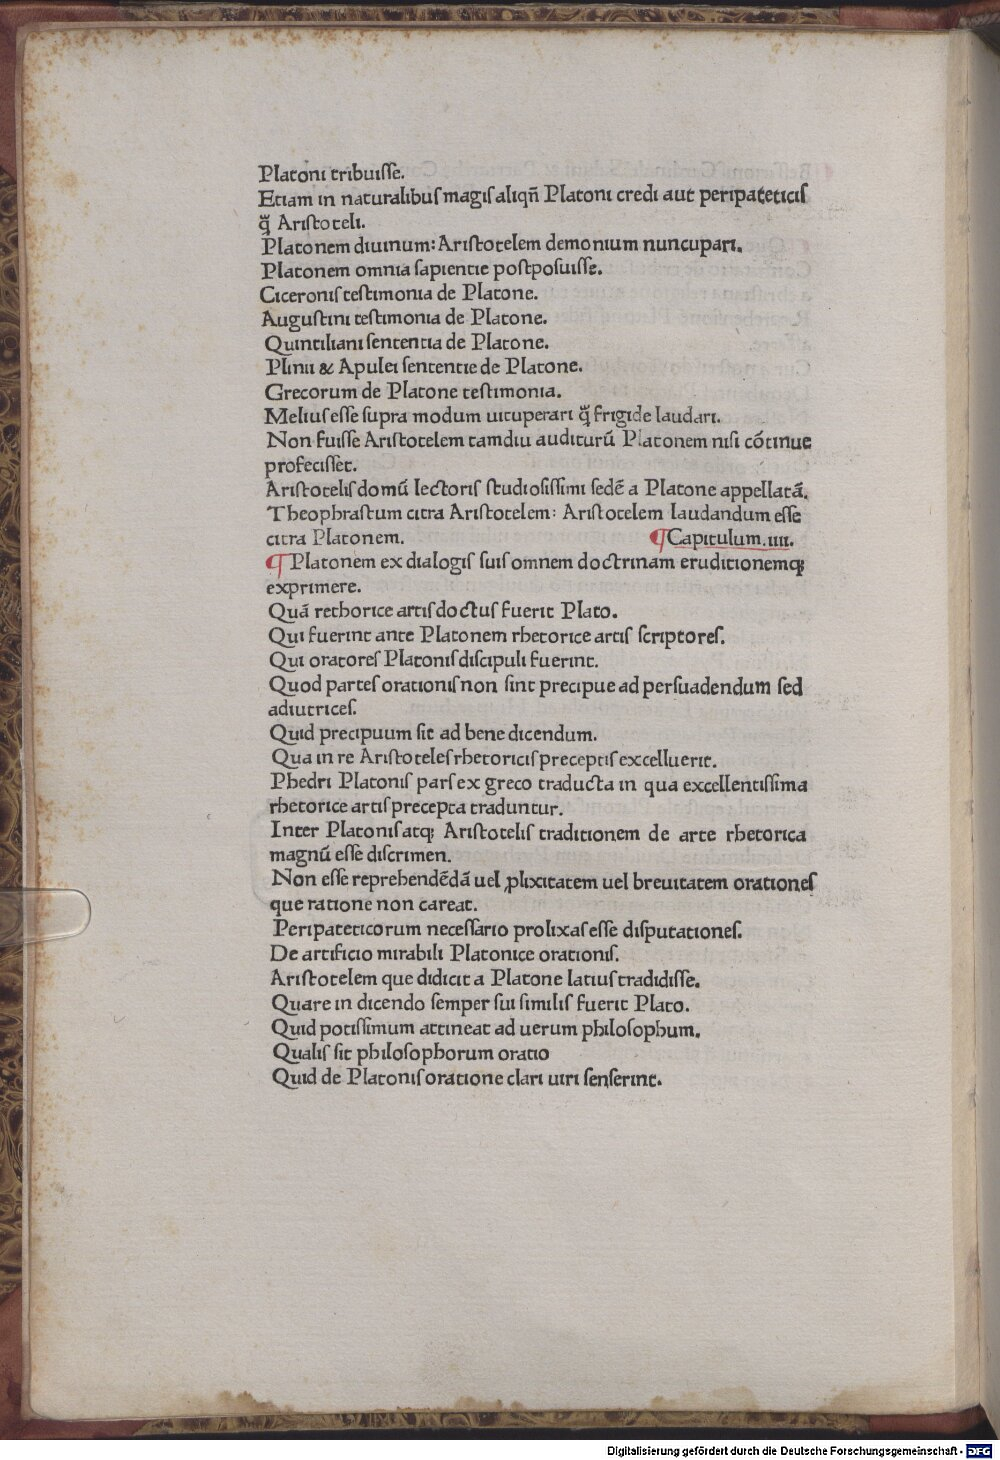 Platoni tribuiſſe.
Etiam in naturalibuſ magiſ aliqñ Platoni credi aut peripateticiſ
q̃ Ariſtoteli.
Platonem diuinum: Ariſtotelem demonium nuncupari.
Platonem omnia ſapientie poſtpoſuiſſe.
Ciceroniſ teſtimonia de Platone.
Auguſtini teſtimonia de Platone.
Quintiliani ſententia de Platone.
Plinii & Apulei ſententie de Platone.
Grecorum de Platone teſtimonia.
Meliuſ eſſe ſupra modum uituperari q̃ frigide laudari.
Non fuiſſe Ariſtotelem tamdiu auditurū Platonem niſi cōtinue
profeciſſet.
Ariſtoteliſ domū lectoriſ ſtudioſiſſimi ſedē a Platone appellatā.
Theophraſtum citra Ariſtotelem: Ariſtotelem laudandum eſſe
citra Platonem. ¶Capitulum.iiii.
¶ Platonem ex dialogiſ ſuiſ omnem doctrinam eruditionemqꝫ
exprimere.
Quā rethorice artiſ doctuſ fuerit Plato.
Qui fuerint ante Platonem rhetorice artiſ ſcriptoreſ.
Qui oratoreſ Platoniſ diſcipuli fuerint.
Quod parteſ orationiſ non ſint precipue ad perſuadendum ſed
adiutriceſ.
Quid precipuum ſit ad bene dicendum.
Qua in re Ariſtoteleſ rhetoriciſ preceptiſ excelluerit.
Phedri Platoniſ parſ ex greco traducta in qua excellentiſſima
rhetorice artiſ precepta traduntur.
Inter Platoniſ atqꝫ Ariſtoteliſ traditionem de arte rhetorica
magnū eſſe diſcrimen.
Non eſſe reprehendēdā uel ꝓlixitatem uel breuitatem orationeſ
que ratione non careat.
Peripateticorum neceſſario prolixaſ eſſe diſputationeſ.
De artificio mirabili Platonice orationiſ.
Ariſtotelem que didicit a Platone latiuſ tradidiſſe.
Quare in dicendo ſemper ſui ſimiliſ fuerit Plato.
Quid potiſſimum attineat ad uerum philoſophum.
Qualiſ ſit philoſophorum oratio
Quid de Platoniſ oratione clari uiri ſenſerint.
Digitalisierung gefördert durch die Deutsche Forschungsgemeinschaft - DFG